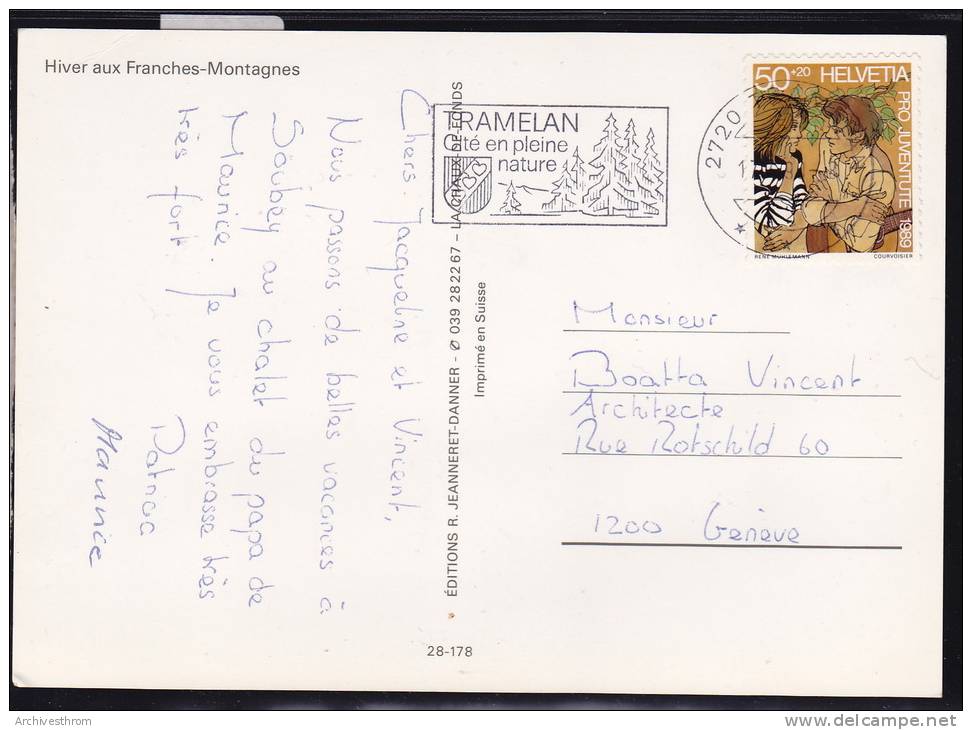 Hiver aux Franches-Montagnes
Chers Jacqueline et Vincent,
Nous passons de belles vacances à
Soubey au chalet du papa de
Maurice. Je vous embrasse très
très fort
Patricia
Maurice
ÉDITIONS R. JEANNERET-DANNER - ∅ 039 28 22 67 - LA CHAUX-DE-FONDS
Imprimé en Suisse
28-178
TRAMELAN
Cité en pleine
nature
2720
50+20 HELVETIA
PRO JUVENTUTE 1989
RENÉ MÜHLEMANN COURVOISIER
Monsieur
Boatta Vincent
Architecte
Rue Rotschild 60
1200 Genève
Archivesthrom
www.delcampe.net